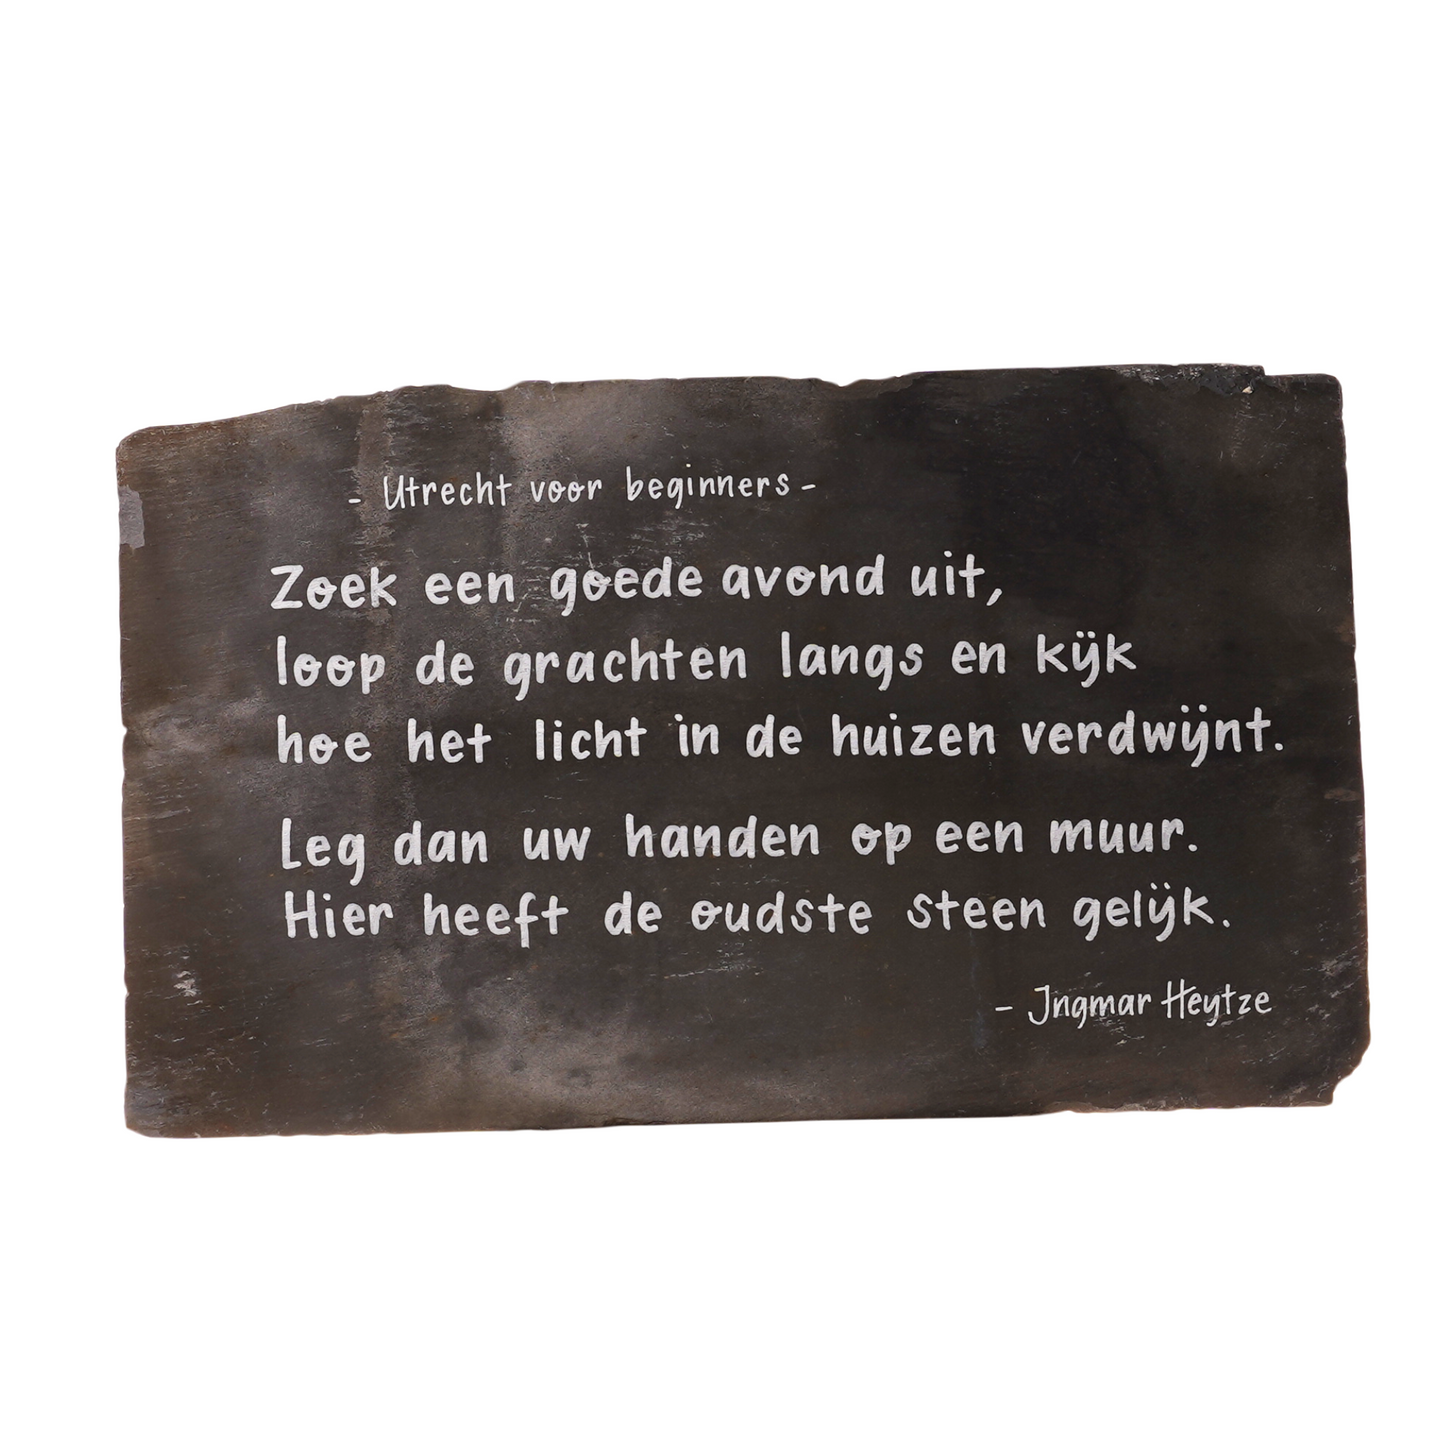 - Utrecht voor beginners -
Zoek een goede avond uit,
loop de grachten langs en kijk
hoe het licht in de huizen verdwijnt.
Leg dan uw handen op een muur.
Hier heeft de oudste steen gelijk.
- Ingmar Heytze